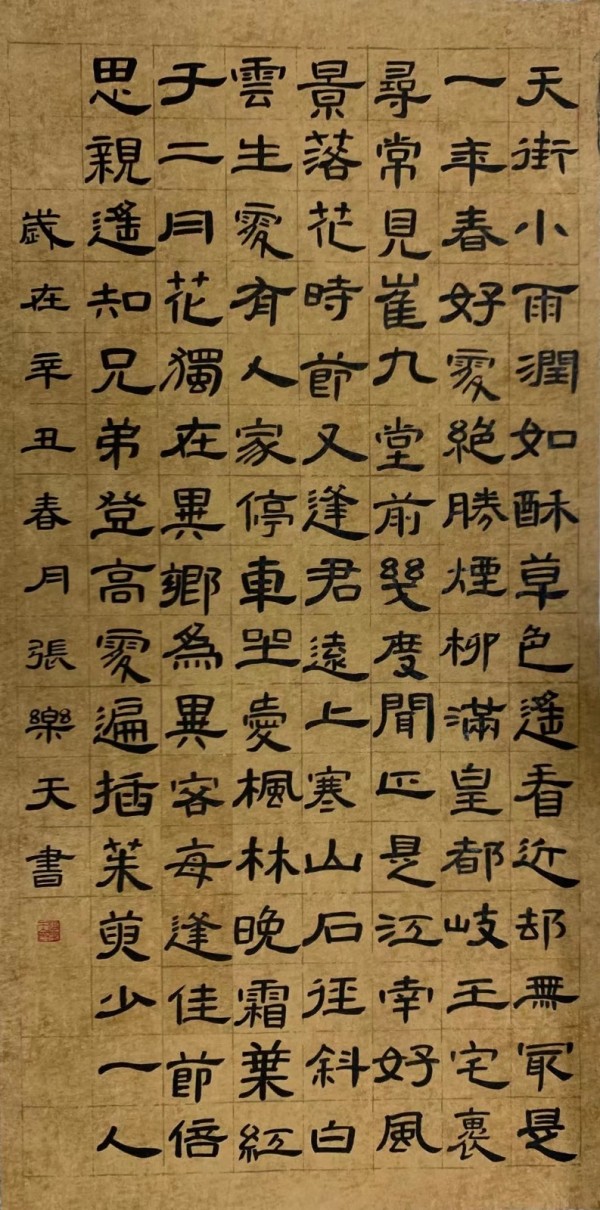 天街小雨潤如酥草色遙看近却無㝡是
一年春好處絕勝煙柳滿皇都岐王宅裏
尋常見崔九堂前幾度聞正是江南好風
景落花時節又逢君遠上寒山石徑斜白
雲生處有人家停車坐愛楓林晚霜葉紅
于二月花獨在異鄉為異客每逢佳節倍
思親遙知兄弟登高處遍插茱萸少一人
歲在辛丑春月張樂天書